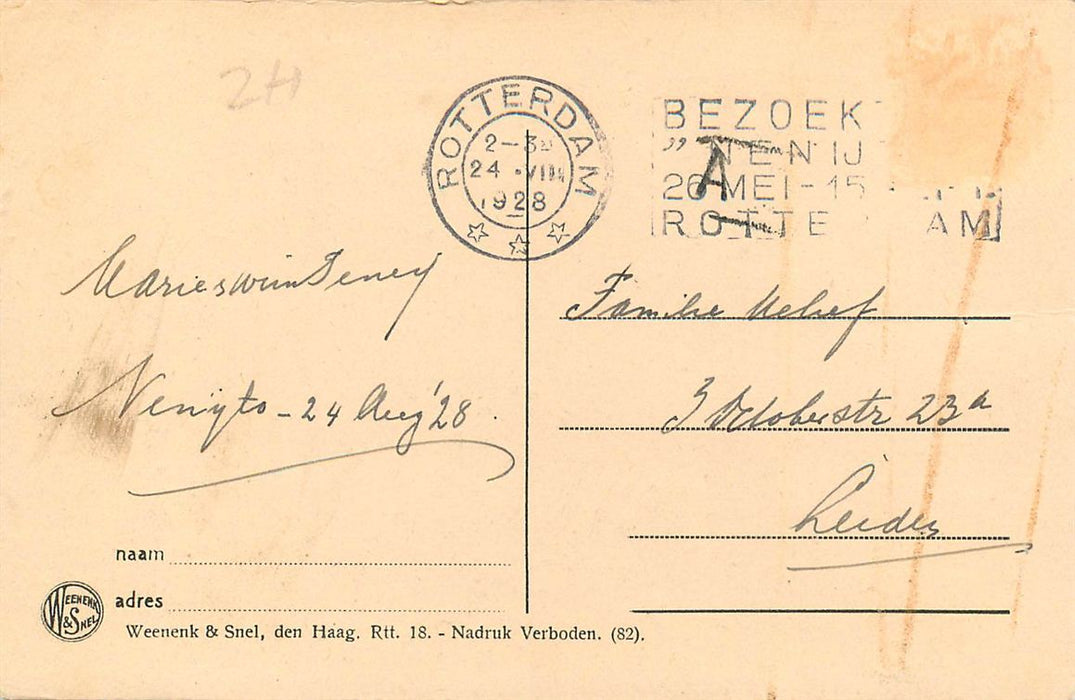 2H
ROTTERDAM
2-3
24 .VIII
1928
BEZOEK
„ NENIJ
26 MEI - 15
ROTTE AM
A
Nenijto - 24 Aug '28.
Familie
3 Octoberstr 23a
Leiden
naam
adres
WEENENK & SNEL
Weenenk & Snel, den Haag. Rtt. 18. - Nadruk Verboden. (82).